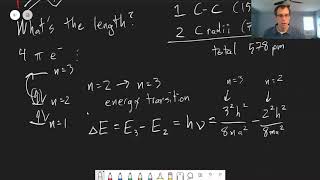 What's the length?
1 C-C (15
2 C radii (7
total 578 pm
4 π e⁻:
n=3
n=2
n=1
n=2 → n=3
energy transition
n=3 n=2
ΔE = E₃ - E₂ = hν = 3²h²/8ma² - 2²h²/8ma²